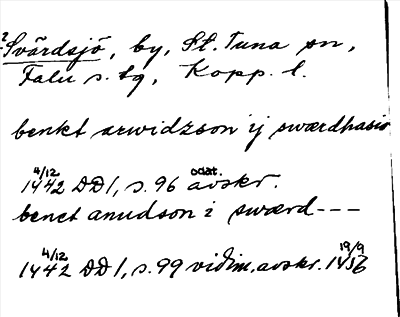 ? Svärdsjö, by, St. Tuna sn,
Falu s. tg, Kopp. l.
benkt arwidzson ij swærdhasio
4/12 1442 DD 1, s. 96 odat. avskr.
benct anudson i swærd---
4/12 1442 DD 1, s. 99 vidim. avskr. 19/9 1456